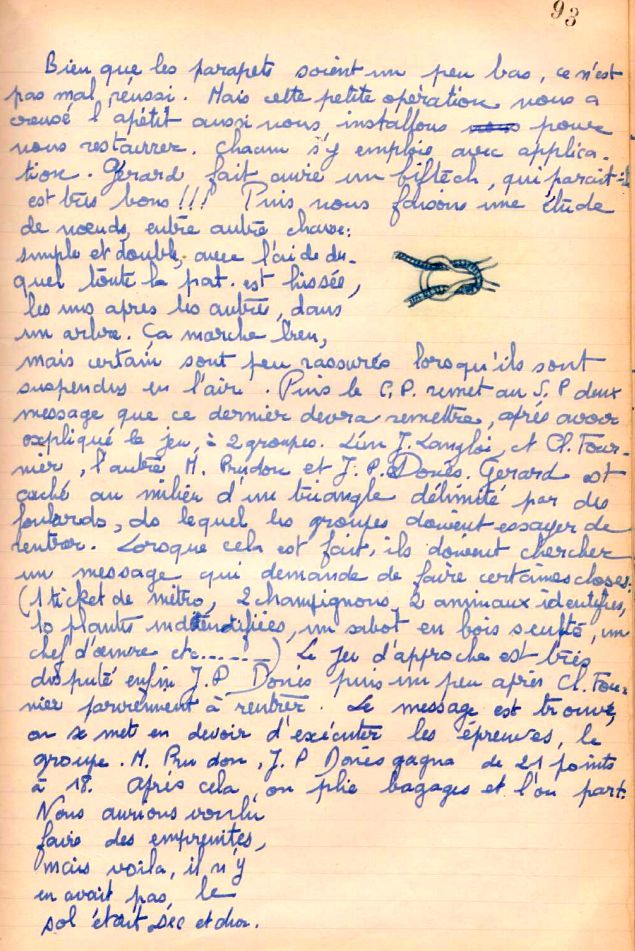 93
Bien que les parapets soient un peu bas, ce n'est
pas mal réussi. Mais cette petite opération nous a
creusé l'apétit aussi nous installons nous pour
nous restaurrer. Chacun s'y emploie avec applica-
tion. Gérard fait cuire un biftech, qui parait-il
est très bons !!! Puis nous faisons une étude
de nœuds, entre autre chaise:
simple et double, avec l'aide du-
quel toute la pat. est hissée,
les uns apres les autres, dans
un arbre. Ça marche bien,
mais certain sont peu rassurés lorsqu'ils sont
suspendus en l'air. Puis le C.P. remet au S.P deux
message que ce dernier devra remettre, après avoir
expliqué le jeu, à 2 groupes. L'un J. Langlois, et Cl. Four-
nier, l'autre M. Prudon et J.P. Donés. Gérard est
caché au milieu d'un triangle délimité par des
foulards, ds lequel les groupes doivent essayer de
rentrer. Lorsque cela est fait, ils doivent chercher
un message qui demande de faire certaines choses:
(1 ticket de métro, 2 champignons, 2 animaux identifiés,
10 plantes indentifiées, un sabot en bois sculté, un
chef d'œuvre etc......) Le jeu d'approche est très
disputé enfin J.P Donés puis un peu après Cl. Fou-
nier parviennent à rentrer. Le message est trouvé,
on se met en devoir d'exécuter les épreuves, le
groupe. M. Prudon, J.P Donés gagna de 21 points
à 18. Après cela, on plie bagages et l'on part.
Nous aurions voulu
faire des empreintes,
mais voila, il n'y
en avait pas, le
sol était sec et dur.